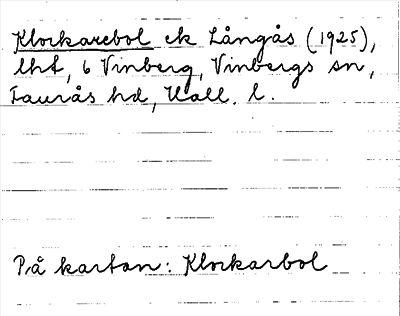 Klockarebol ek Långås (1925),
lht, 6 Vinberg, Vinbergs sn,
Faurås hd, Hall. l.
På kartan: Klockarbol